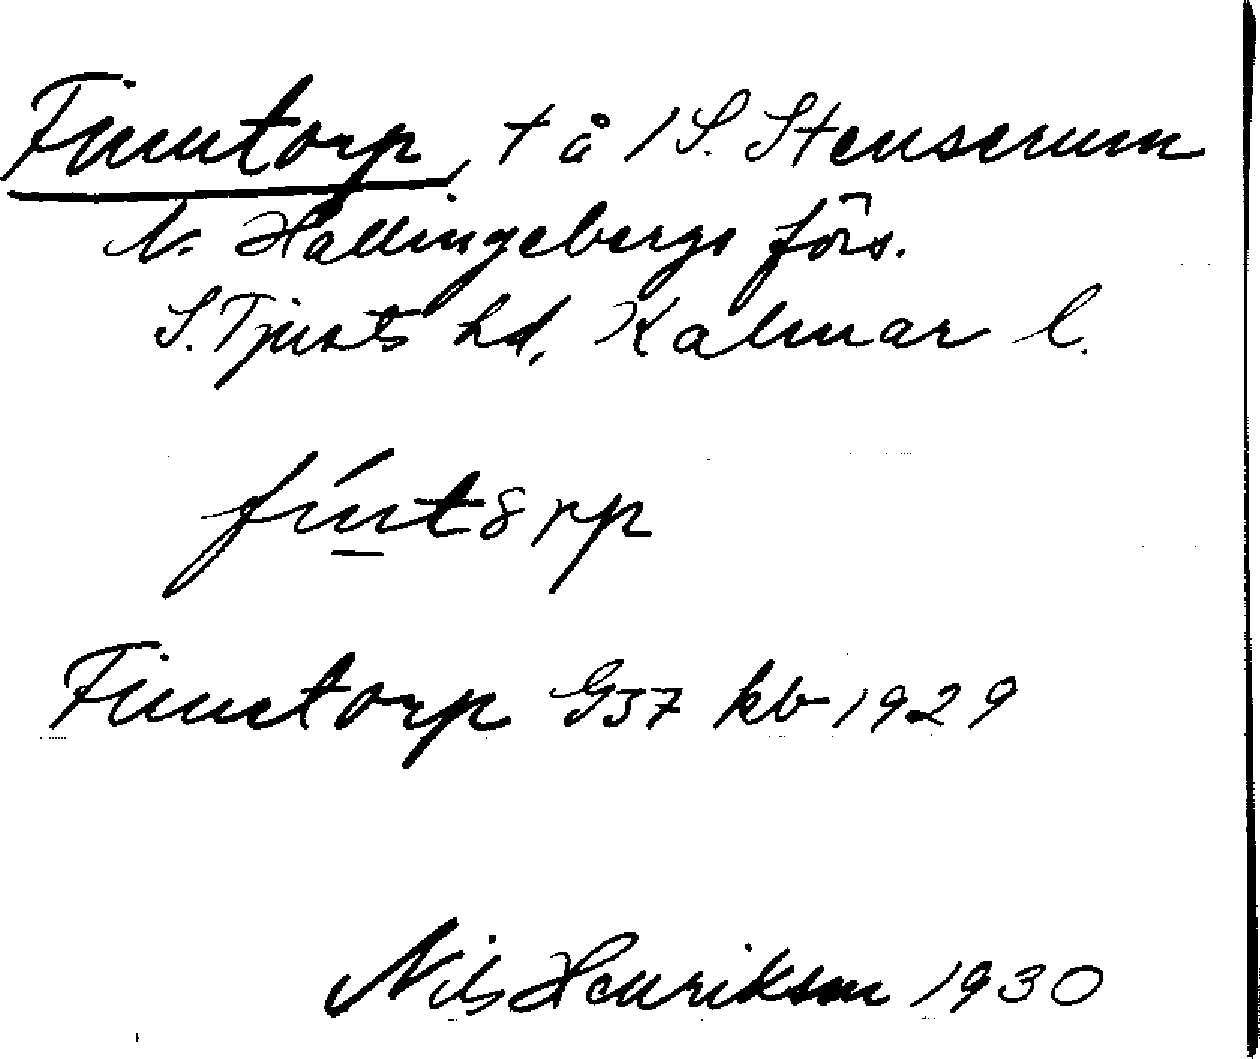 Finntorp, t å /S. Stenserum
V. Hallingebergs förs.
S. Tjusts hd, Kalmar l.
fíntorp
Finntorp G57 kb 1929
Nils Henrikson 1930